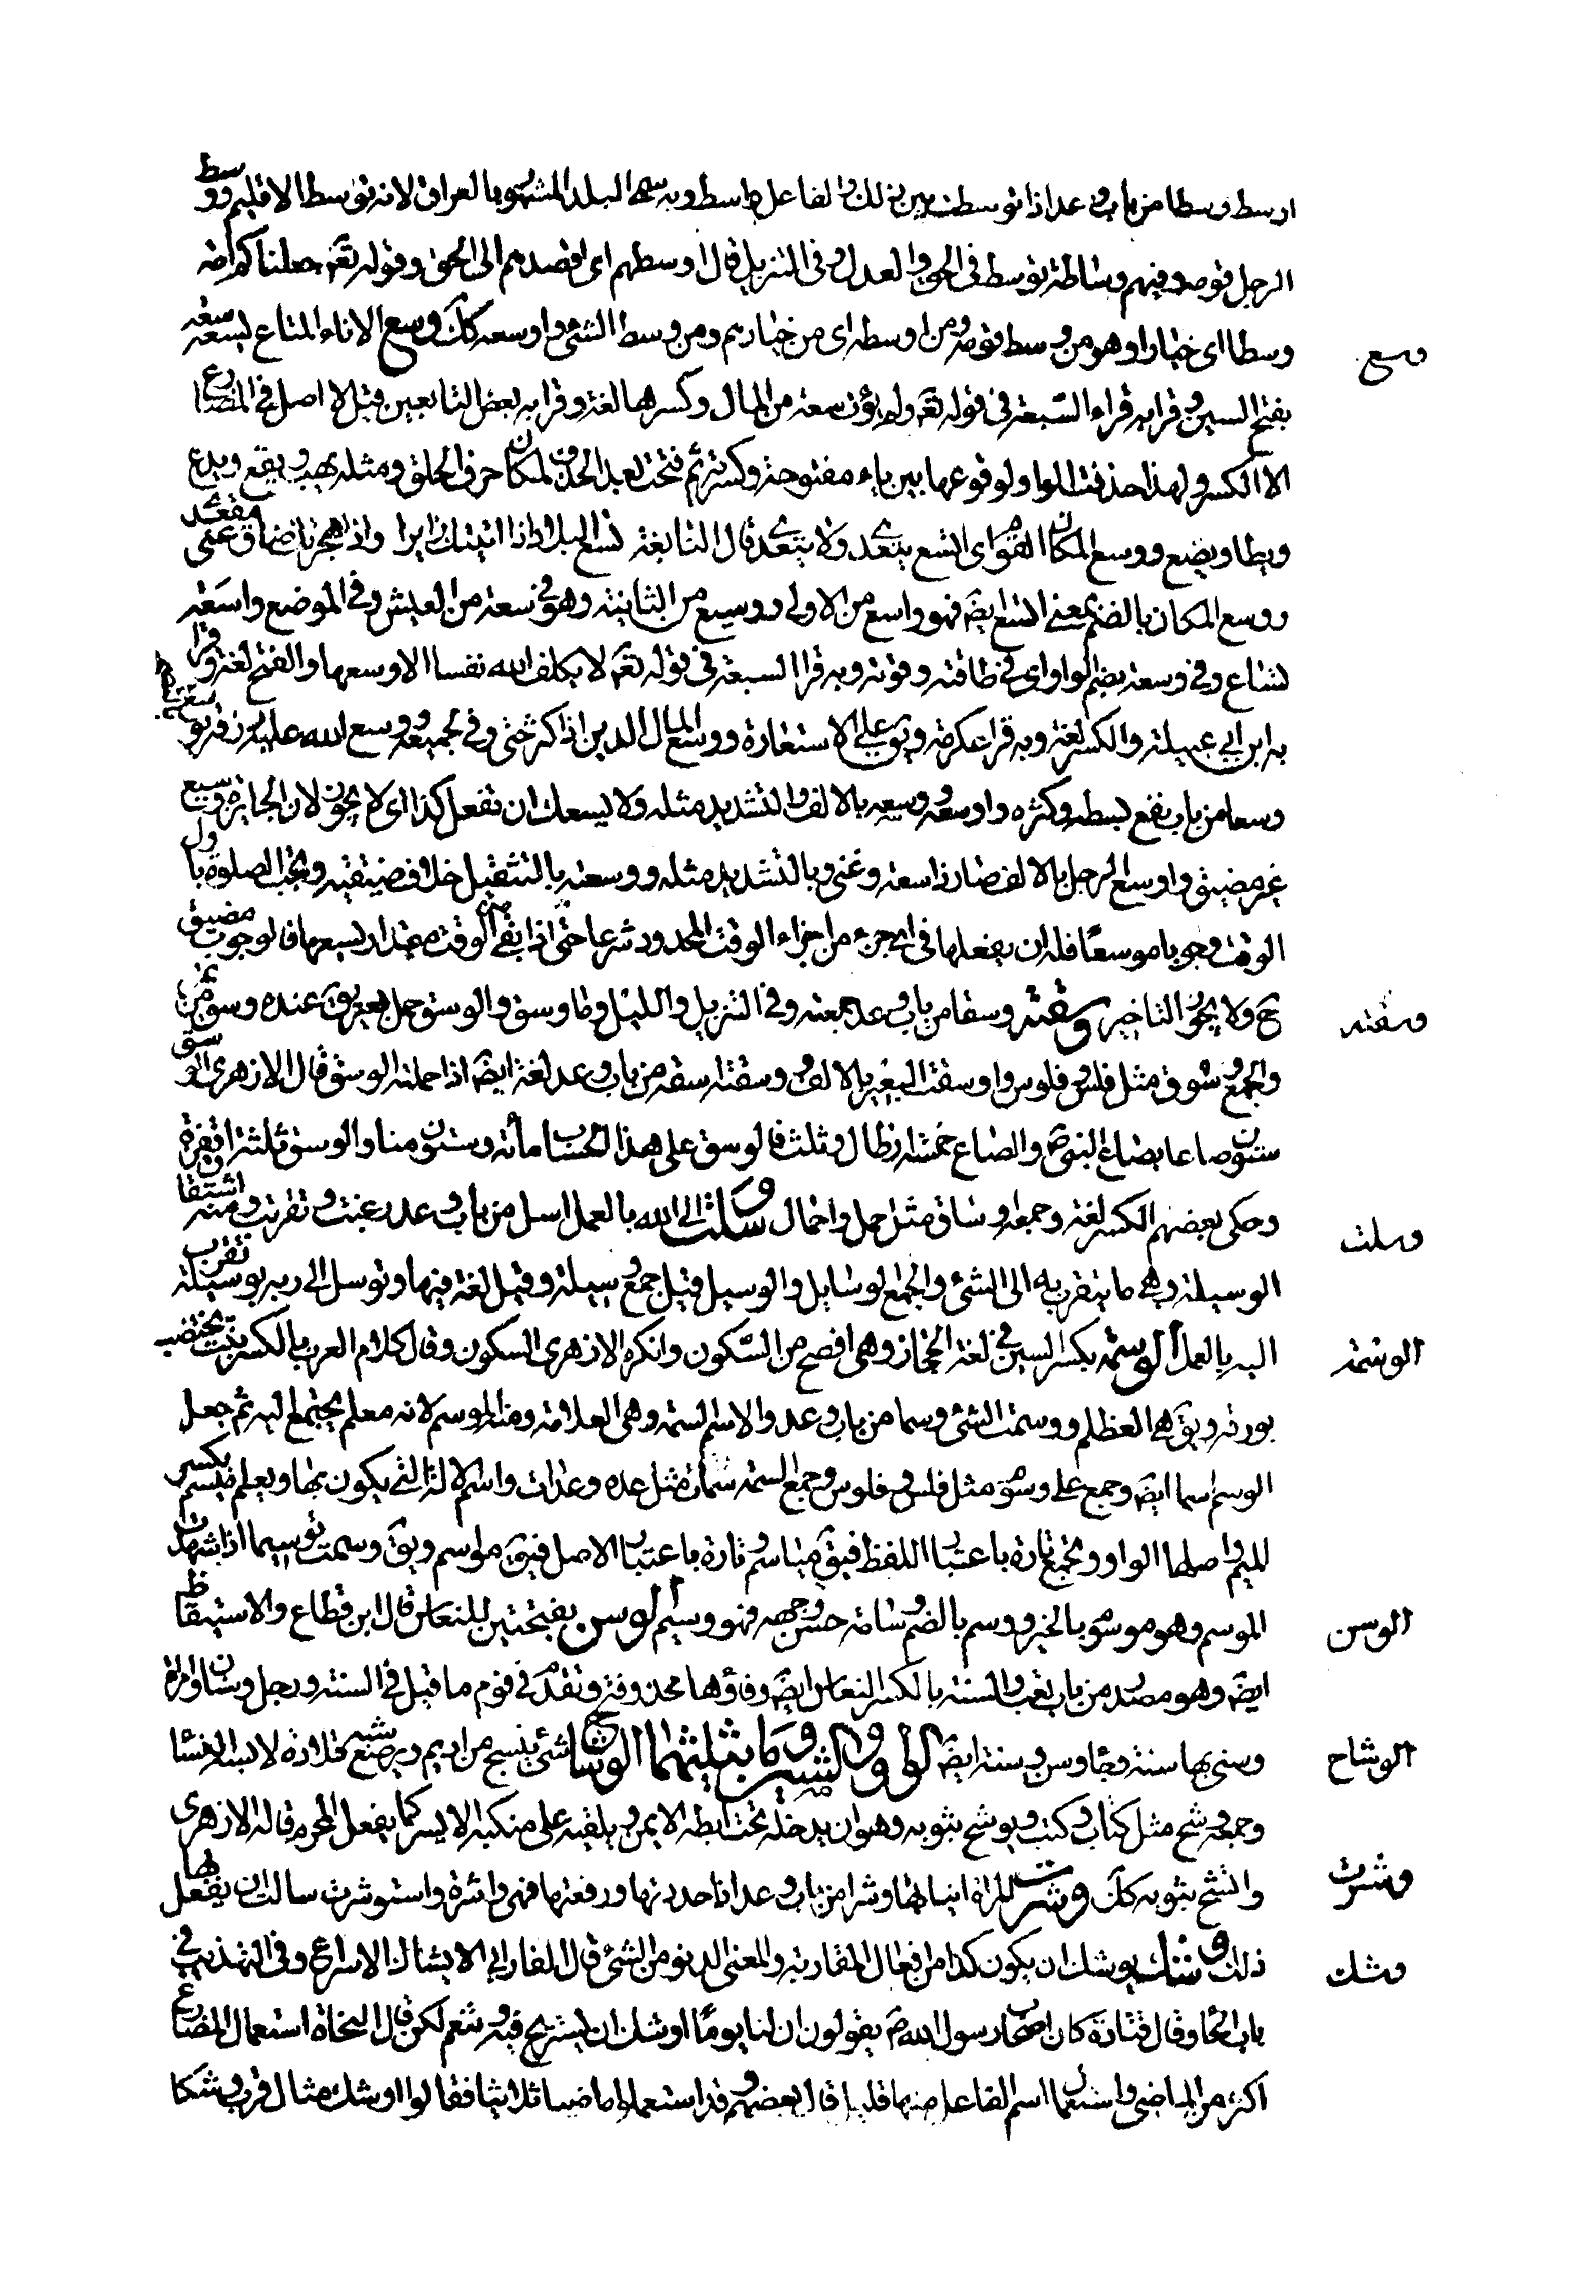 اوسط وسطا من باب وعد اذا توسطت بين ذلك والفاعل واسط وبه سمى البلد المشهور بالعراق لانه توسط الاقليم ووسط
الرجل قومه وفيهم وساطة توسط في الحق والعدل وفى التنزيل قال اوسطهم اى اقصدهم الى الحق وقوله تعم جعلناكم امة
وسطا اى خيارا وهو من وسط قومه ومن اوسطه اى من خيارهم ومن وسط الشئ واوسعه كك وسع الاناء المتاع يسعه سعة
وسع
بفتح السين وقرا به قراء السبعة فى قوله تعم ولم يؤت سعة من المال وكسرها لغة وقرا به بعض التابعين قيل الاصل فى المضارع
الا الكسر ولهذا حذفت الواو لوقوعها بين ياء مفتوحة وكسرة ثم فتحت بعد الحذف لمكان حرف الحلق ومثله يهب ويقع ويدع
ويطا ويضع ووسع المكان القوم اى اتسع يتعدى ولا يتعدى قال النابغة تسع البلاد اذا اتيتك زايرا واذا هجرتك ضاق عنى مقعدى
ووسع المكان بالضم بمعنى اتسع ايضً فهو واسع من الاولى ووسيع من الثانية وهو فى سعة من العيش وفى الموضع واسعة
تساع وفى وسعة بضم الواو اى فى طاقته وقوته وبه قرا السبعة فى قوله تعم لا يكلف الله نفسا الا وسعها والفتح لغة وقرا
به ابن ابي عبيلة والكسر لغة وبه قرا عكرمة ويق على الاستعارة ووسع المال الدين اذا كثر حتى وفى بجميعه ووسع الله عليه رزقه يوسع
وسعا من باب نفع بسطه وكثره واوسعه ووسعه بالالف والتشديد مثله ولا يسعك ان تفعل كذا اى لا يجوز لان الجايز موسع
غير مضيق واوسع الرجل بالالف صار ذا سعة وغنى وبالتشديد مثله ووسعته بالتثقيل خلاف ضيقته ويجب الصلوة باول
الوقت وجوبا موسعا فله ان يفعلها فى اى جزء من اجزاء الوقت المحدود شرعا حتى اذا بقى من الوقت مقدار يسعها فالوجوب مضيق
ح ولا يجوز التاخير وسقته وسقا من باب وعد جمعته وفى التنزيل والليل وما وسق والوسق حمل بعير يق عنده وسق من تمر
وسقته
والجمع وسوق مثل فلس وفلوس واوسقت البعير بالالف ووسقته اسقه من باب وعد لغة ايضً اذا حملته الوسق قال الازهرى الوسق
ستون صاعا بصاع النبى ص والصاع خمسة ارطال وثلث فالوسق على هذا الحساب مأة وستون منا والوسق ثلثة اقفزة
وحكى بعضهم الكسر لغة وجمعه اوساق مثل حمل واحمال وسلت الى الله بالعمل اسل من باب وعد رغبت وتقربت ومنه اشتقاق
وسلت
الوسيلة وهى ما يتقرب به الى الشئ والجمع الوسايل والوسيل قيل جمع وسيلة وقيل لغة فيها وتوسل الى ربه بوسيلة تقرب
اليه بالعمل الوسمة بكسر السين فى لغة الحجاز وهى افصح من السكون وانكر الازهرى السكون وقال كلام العرب بالكسر نبت يختضب
الوسمة
بورقه ويق هى العظلم ووسمت الشئ وسما من باب وعد والاسم السمة وهى العلامة ومنه الموسم لانه معلم يجتمع اليه ثم جعل
الوسم اسما ايضً وجمع على وسوم مثل فلس وفلوس وجمع السمة سمات مثل عدة وعدات واسم الالة التى يكون بها ويعلم ميسم بكسر
الميم واصلها الواو ويجمع تارة باعتبار اللفظ فيق مياسم وتارة باعتبار الاصل فيق مواسم ويق وسمت توسيما اذا شهدت
الموسم وهو موسوم بالخير ووسم بالضم وسامة حسن وجهه فهو وسيم الوسن بفتحتين النعاس قال ابن قطاع والاستيقاظ
الوسن
ايضً وهو مصدر من باب تعب والسنة بالكسر النعاس ايضً وفاؤها محذوفة وتقدم فى نوم ما قيل فى السنة ورجل وسنان وامراة
وسنى بها سنة وجا وسن وسنة ايضً الواو والشين وما يثلثهما الوشاح شئ ينسج من اديم ويرصع شبه قلادة لابسه النسا
الوشاح
وجمعه وشح مثل كتاب وكتب وتوشح بثوبه وهو ان يدخله تحت ابطه الايمن ويلقيه على منكبه الايسر كما يفعل المحرم قاله الازهرى
واتشح بثوبه كك وشرت المراة انيابها وشرا من باب وعد اذا حددتها ورفعتها فهى واشرة واستوشرت سالت ان يفعل بها
وشرت
ذلك وشك يوشك ان يكون كذا من افعال المقاربة والمعنى الدنو من الشئ قال الفارابى الايشاك الاسراع وفى التهذيب فى
وشك
باب الحا وقال قتادة كان اصحاب رسول الله ص يقولون ان لنا يوما اوشك ان يستريح فيه ونتنعم لكن قال النحاة استعمال المضارع
اكثر من الماضى واستعمال اسم الفاعل منها قليل قال بعضهم وقد استعملوا ماضيا ثلاثيا فقالوا وشك مثال قرب وشكا